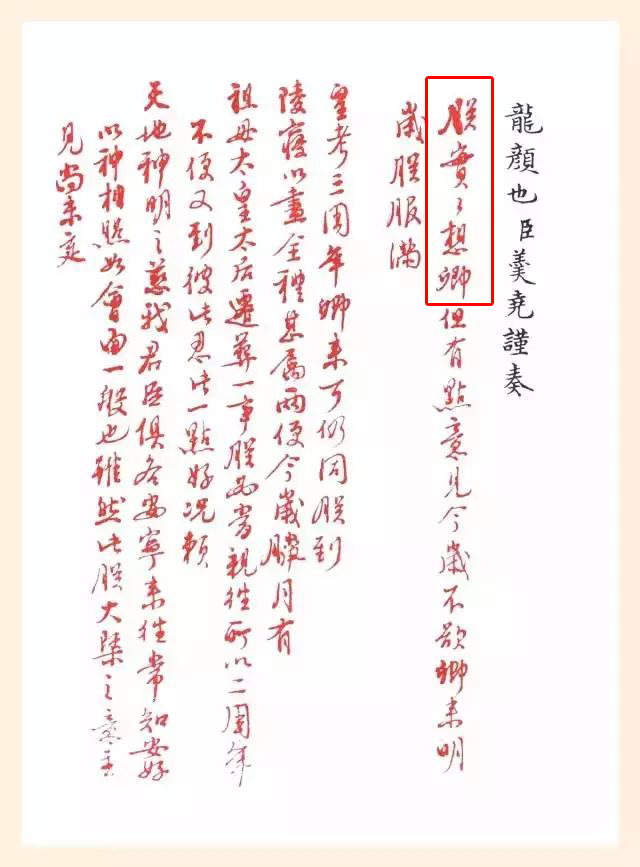 龍顏也臣羹堯謹奏
朕實々想卿但有點意見今歲不欲卿来明
歲朕服滿
皇考三周年卿来可仍同朕到
陵寢以盡全禮甚属兩便今歲臘月有
祖母太皇太后遷葬一事朕必當親往所以二周年
不便又到彼此忍此一點好況賴
天地神明之慈我君臣俱各安寧来往常知安好
以神相照如會面一般也雖然此朕大槩之意主
見尚未定